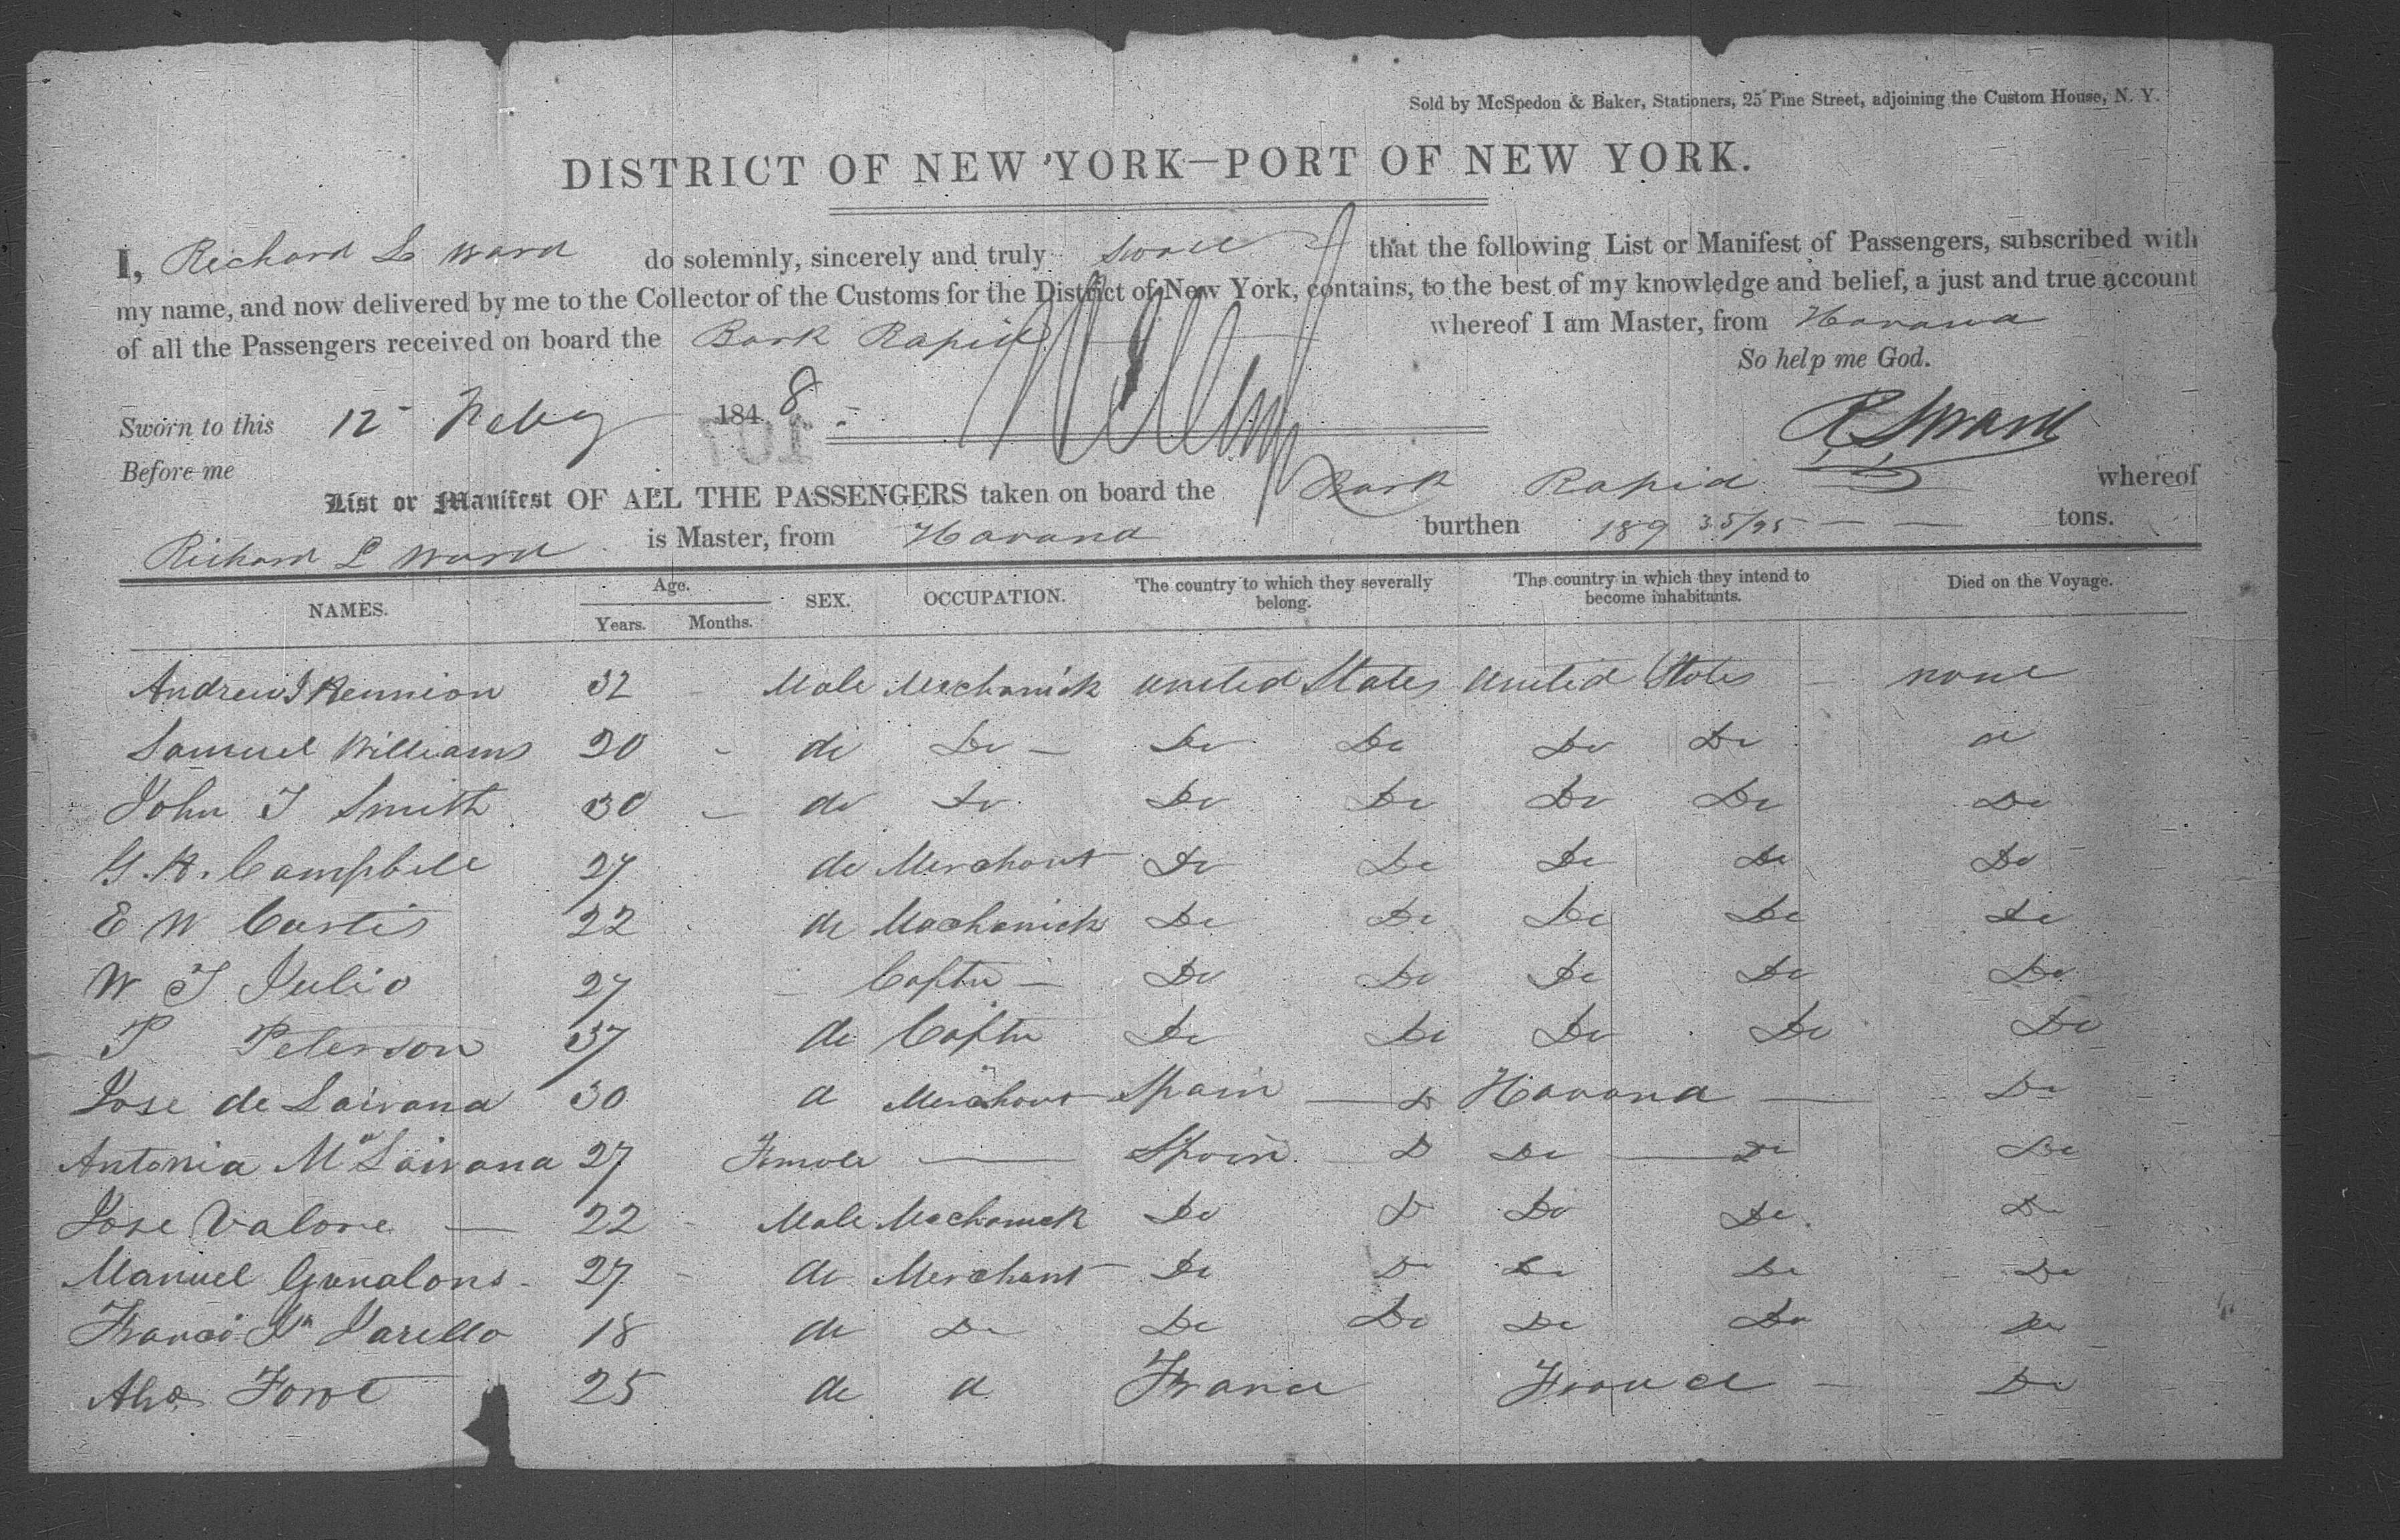 Sold by McSpedon & Baker, Stationers, 25 Pine Street, adjoining the Custom House, N. Y.
DISTRICT OF NEW YORK—PORT OF NEW YORK.
I, Richard L Ward do solemnly, sincerely and truly that the following List or Manifest of Passengers, subscribed with
my name, and now delivered by me to the Collector of the Customs for the District of New York, contains, to the best of my knowledge and belief, a just and true account
of all the Passengers received on board the Bark Rapid whereof I am Master, from Havana
So help me God.
Sworn to this 12 Feby 1848
R L Ward
Before me
107
List or Manifest OF ALL THE PASSENGERS taken on board the Bark Rapid whereof
Richard L Ward is Master, from Havana burthen 189 35/95 tons.
NAMES. Age. Years. Months. SEX. OCCUPATION. The country to which they severally belong. The country in which they intend to become inhabitants. Died on the Voyage.
Andrew J 32 - Male Mechanick United States United States - none
Samuel Williams 20 - do Do - Do Do Do Do do
John T Smith 30 - do Do Do Do Do Do Do
G. A. Campbell 27 do Merchant Do Do Do Do Do
E W 22 do Mechanick Do Do Do Do Do
W T Julio 27 - Captn - Do Do Do Do Do
P Peterson 37 do Captn Do Do Do Do Do
Jose de Lairana 30 d Merchant Spain — D Havana — Do
Antonia Ma Lairana 27 Female — Spain D Do — Do Do
Jose Valore — 22 - Male Mechanick Do D Do Do Do
Manuel - 27 - do Merchant Do Do Do Do Do
Jarillo 18 do Do Do Do Do Do Do
25 do d France France - Do